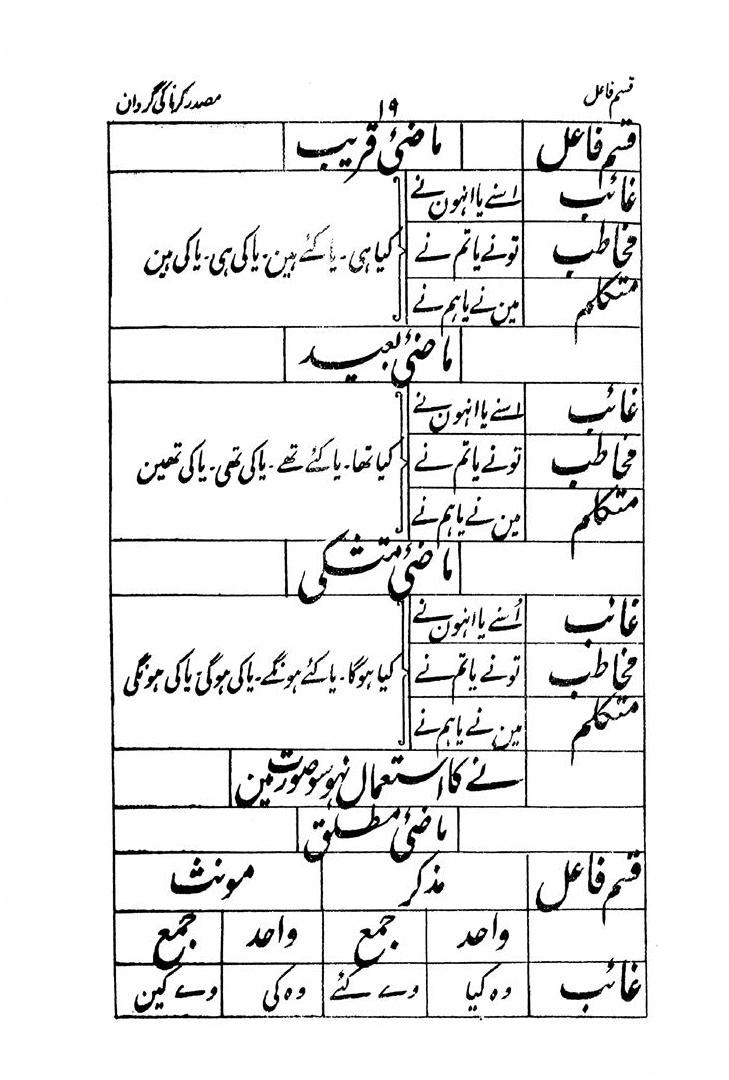 قسم فاعل ۱۹ مصدر کرنا کی گردان
قسم فاعل ماضیٔ قریب
غائب اسنے یا انہون نے
مخاطب تونے یا تم نے کیا ہی ۔ یا کئے ہین ۔ یا کی ہی ۔ یا کی ہین
متکلم مین نے یا ہم نے
ماضیٔ بعید
غائب اسنے یا انہون نے
مخاطب تونے یا تم نے کیا تھا ۔ یا کئے تھے ۔ یا کی تھی ۔ یا کی تھین
متکلم مین نے یا ہم نے
ماضیٔ متشکی
غائب اُسنے یا انہون نے
مخاطب تونے یا تم نے کیا ہوگا ۔ یا کئے ہونگے ۔ یا کی ہوگی ۔ یا کی ہونگی
متکلم مین نے یا ہم نے
نے کا استعمال نہو سو صورت مین
ماضیٔ مطلق
قسم فاعل مذکر مونث
واحد جمع واحد جمع
غائب وہ کیا وے کئے وہ کی وے کین